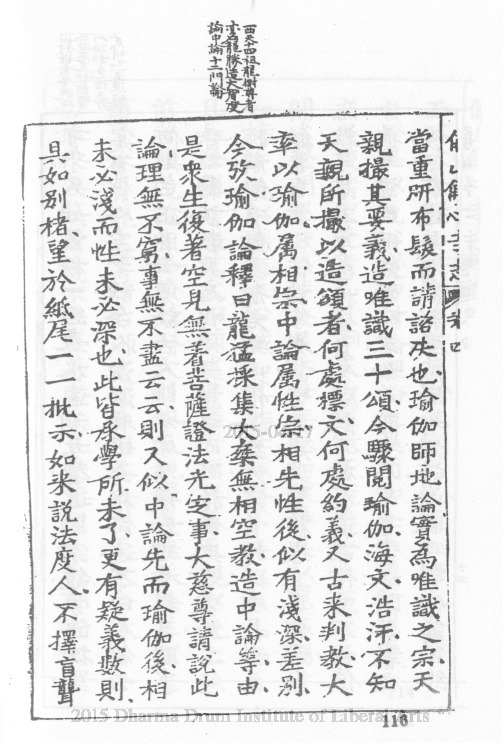 西天十四祖龍樹尊者
亦名龍勝造大智度
論中論十二門論
當重趼布髮而請諮决也瑜伽師地論實為唯識之宗天
親撮其要義造唯識三十頌今驟閱瑜伽海文浩汗不知
天親所撮以造頌者何處標文何處約義又古来判教大
率以瑜伽屬相宗中論屬性宗相先性後似有淺深差別
今攷瑜伽論釋曰龍猛採集大藥無相空教造中論等由
是衆生復著空見無着菩薩證法光定事大慈尊請說此
論理無不窮事無不盡云云則又似中論先而瑜伽後相
未必淺而性未必深也此皆承學所未了更有疑義數則
具如別楮望於紙尾一一批示如来說法度人不擇盲聾
2015 Dharma Drum Institute of Liberal Arts
116